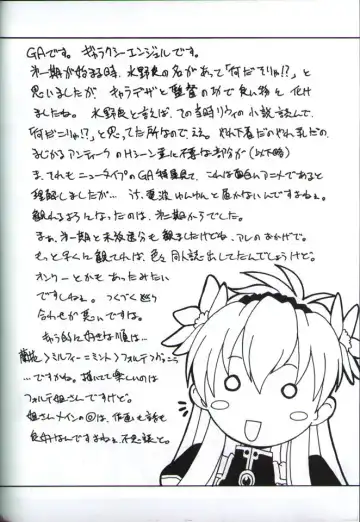 GAです。ギャラクシーエンジェルです。
第一期が始まる時、水野良の名があって「何だそりゃ!?」と
思いましたが キャラデザと監督の功で良い物に化け
ましたね。水野良と言えば、この当時リウイの小説読んで、
「何だこりゃ!?」と思ってた所なので、ええ。やれ下着だのやれ乳だの、
まじかるアンティークのHシーン並に不要な部分が(以下略)
ま、それもニュータイプのGA特集見て、これは面白いアニメであると
理解しましたが… 電波 ゆんゆんと届かないんですよねぇ。
観れるようになったのは、第一期からでした。
まぁ、第一期と未放送分も観ましたけどね、アレのおかげで。
もっと早くに観てれば、色々同人誌出してたんでしょうけど。
オンリーとかもあったみたい
ですしねぇ。つくづく巡り
合わせが悪いですな。
キャラ的に好きな順は…
蘭花>ミルフィー=ミント>フォルテ>ヴァニラ
…ですかね。描いてて楽しいのは
フォルテ姐さんですけど。
姐さんメインの回は、作画も話も
良好なんですよねぇ、不思議と。